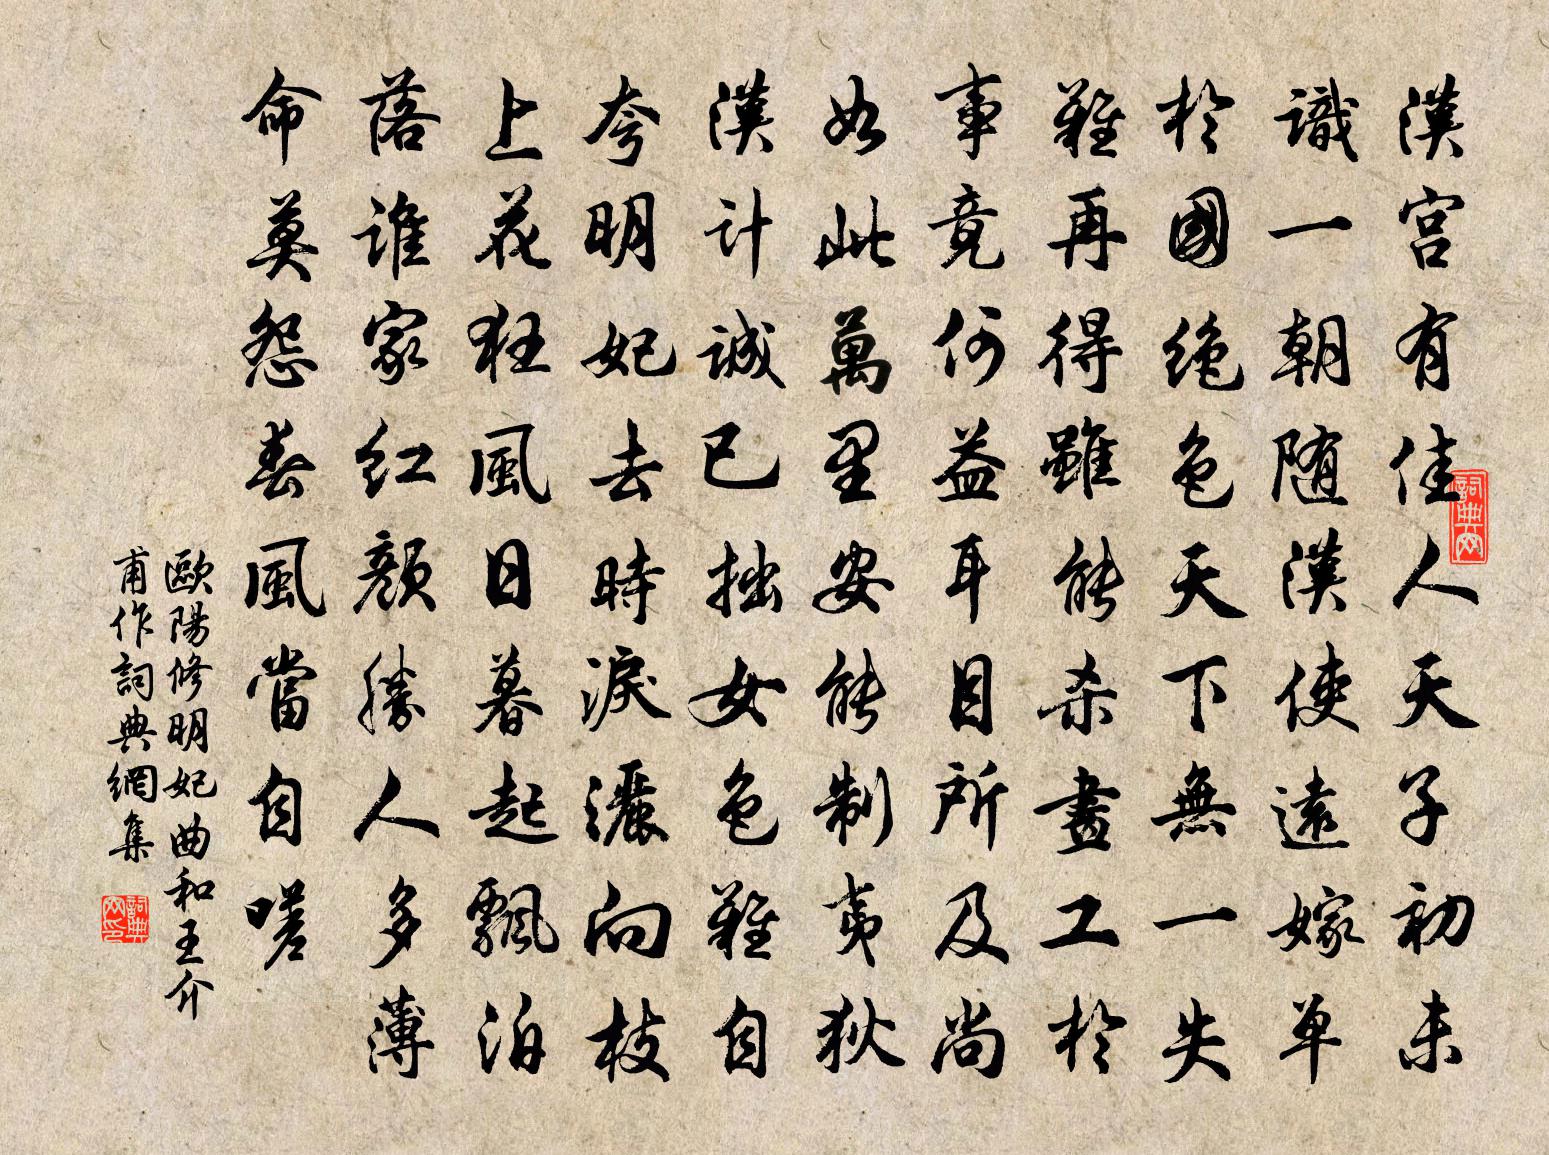 漢宮有佳人天子初未
識一朝隨漢使遠嫁單
於國絕色天下無一失
難再得雖能杀畫工於
事竟何益耳目所及尚
如此萬里安能制夷狄
漢計誠已拙女色難自
夸明妃去時淚灑向枝
上花狂風日暮起飄泊
落誰家紅顏勝人多薄
命莫怨春風當自嗟
歐陽修明妃曲和王介
甫作詞典網集
詞典网
詞典网印